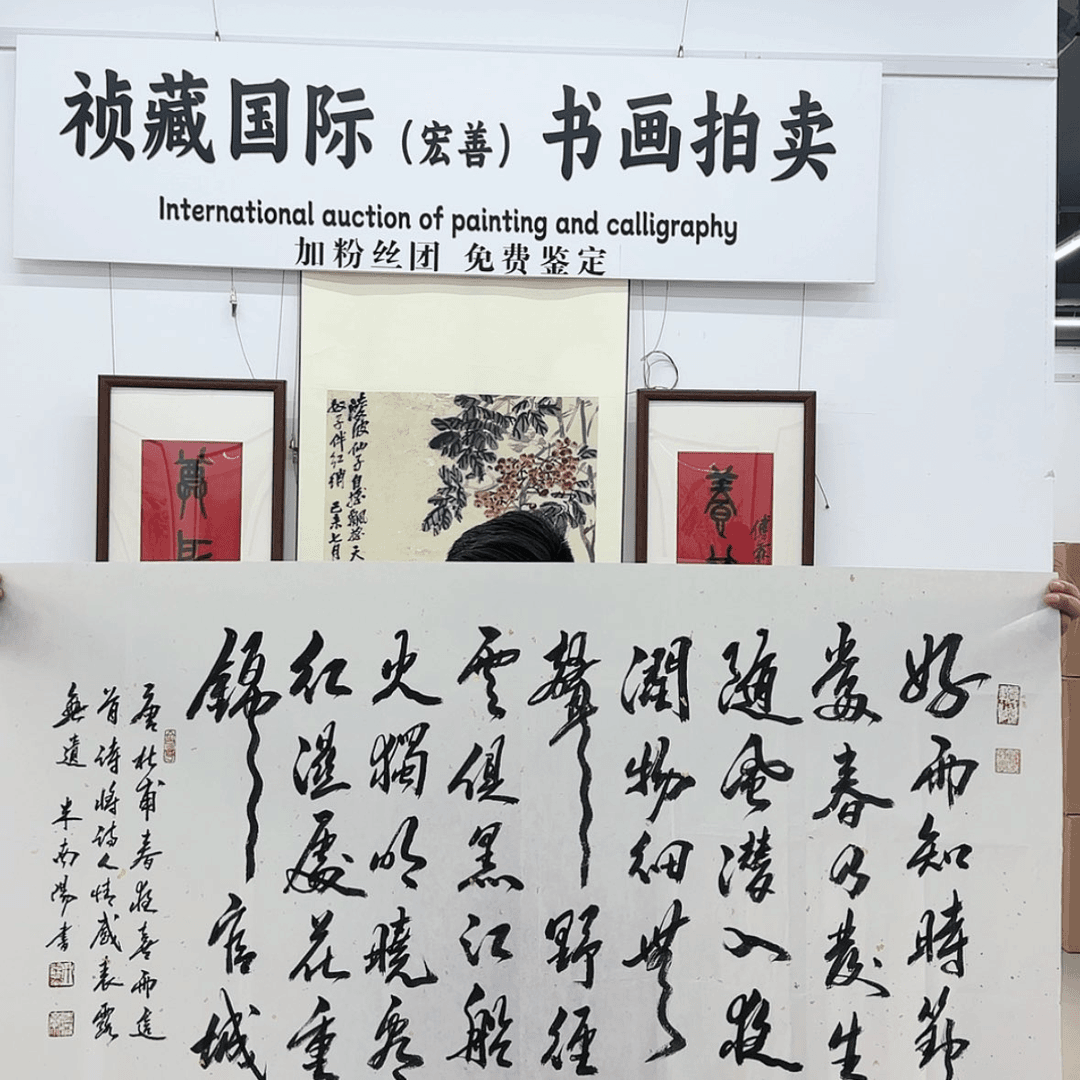 祯藏国际（宏善）书画拍卖
International auction of painting and calligraphy
加粉丝团 免费鉴定
仙子
伴红 己未七月
好雨知時節
當春乃發生
隨風潛入夜
潤物細無
聲野徑
雲俱黑江船
火獨明曉看
紅濕處花重
錦官城
唐杜甫春夜喜雨這
首詩將詩人情感表露
無遺 米南陽書